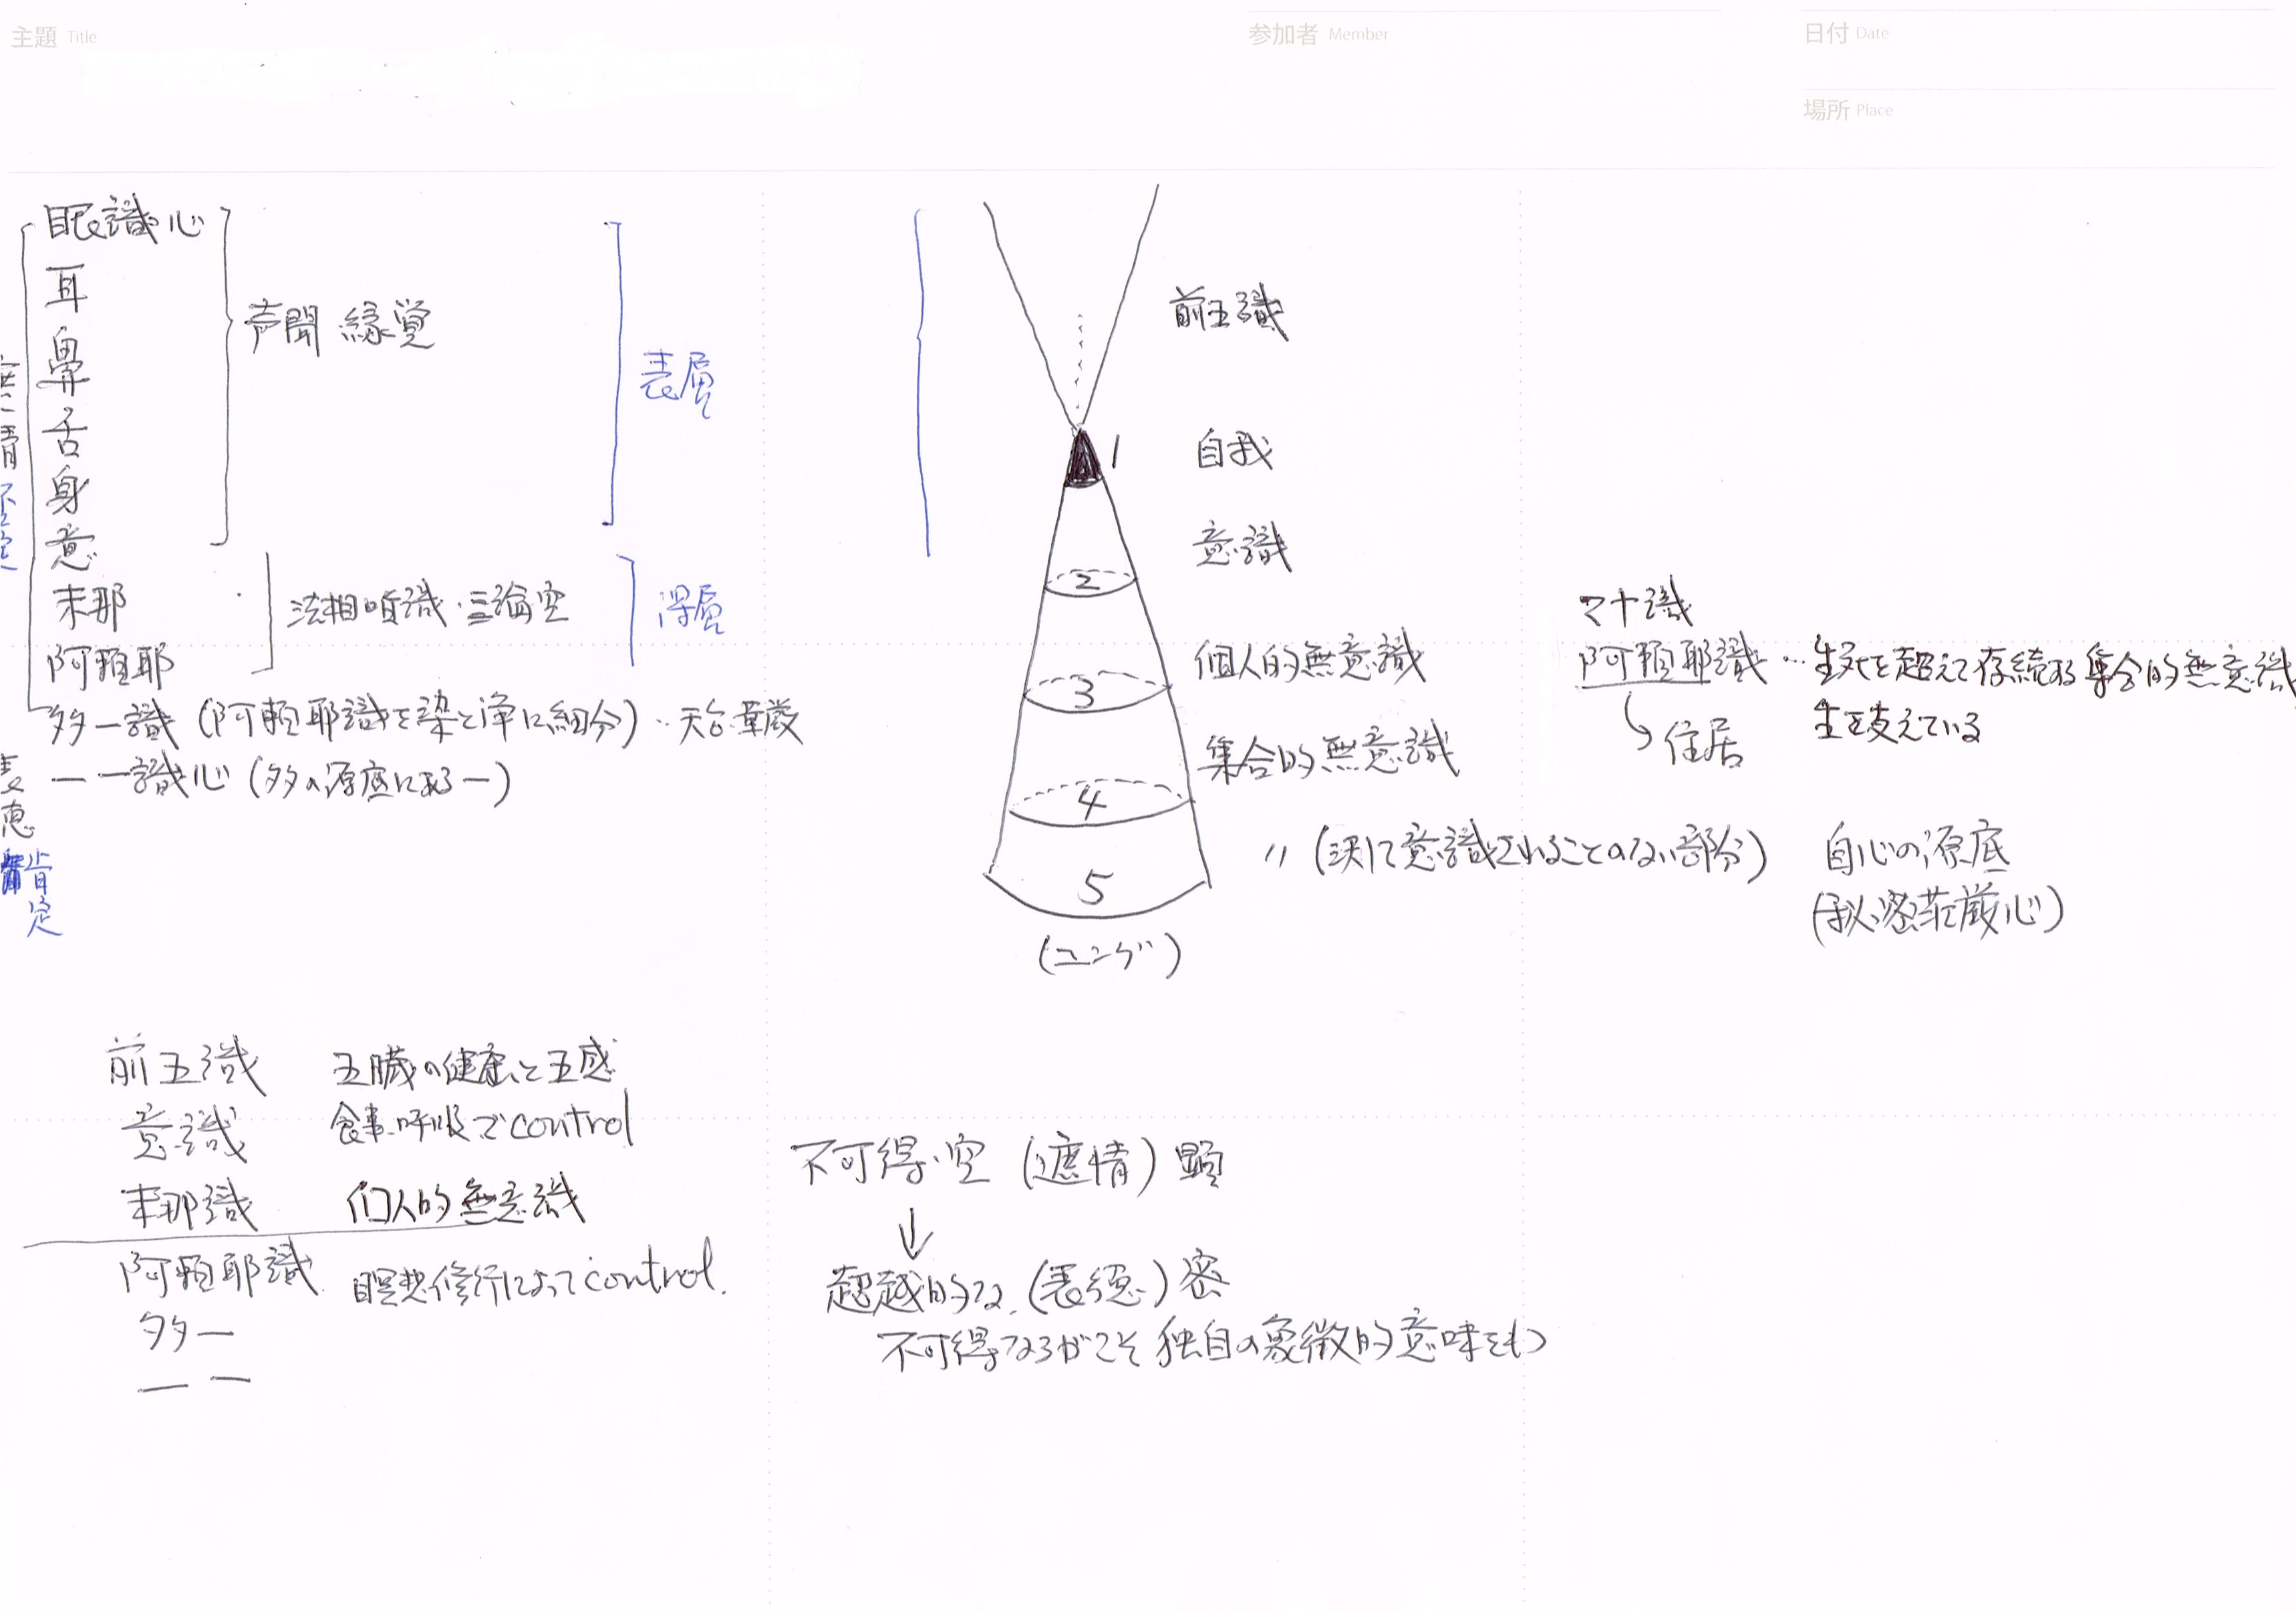 主題 Title
参加者 Member
日付 Date
場所 Place
眼識心
耳
鼻
舌
身
意
末那
阿頼耶
声聞 縁覚
表層
法相唯識・三論空
深層
多一識 (阿頼耶識を染と浄に細分) ‥天台・華厳
一一識心 (多の源底にある一)
情
否定
表
肯定
前五識
1 自我
意識
2
個人的無意識
3
集合的無意識
4
〃 (決して意識されることのない部分)
5
(ユング)
マナ識
阿頼耶識 … 生死を超えて存続する集合的無意識
生を支えている
住居
自心の源底
(秘密荘厳心)
前五識 五臓の健康と五感
意識 食事・呼吸でcontrol
末那識 個人的無意識
阿頼耶識 瞑想・修行によってcontrol.
多一
一 一
不可得・空 (遮情) 顕
↓
超越的な (表徳) 密
不可得なるがこそ 独自の象徴的意味をもつ